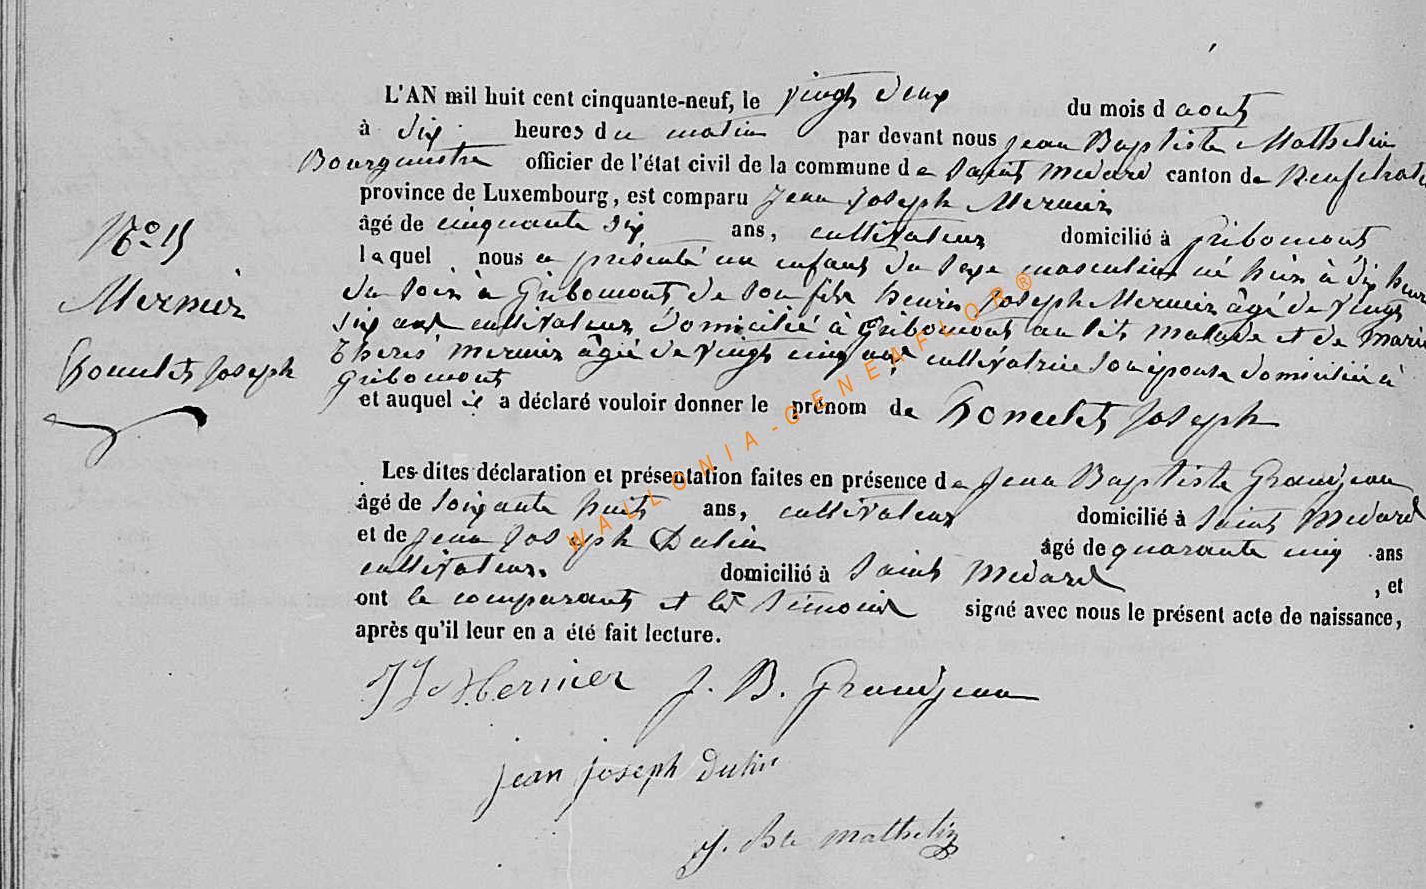 L'AN mil huit cent cinquante-neuf, le vingt deux du mois d aout
à dix heures du matin par devant nous Jean Baptiste Mathelin
Bourgmestre officier de l'état civil de la commune de Saint Medard canton de Neufchat
province de Luxembourg, est comparu Jean Joseph Mernier
âgé de cinquante six ans, cultivateur domicilié à Gribomont
laquel nous a présenté un enfant du sexe masculin né hier à dix heur
du soir à Gribomont de son fils henri Joseph Mernier âgé de vingt
six ans cultivateur domicilié à Gribomont au lit malade et de Marie
Therese mernier âgée de vingt cinq ans cultivatrice son épouse domiciliée à
Gribomont
et auquel il a déclaré vouloir donner le prénom de Joseph
N° 15
Mernier
Joseph
Les dites déclaration et présentation faites en présence de Jean Baptiste Grandjean
âgé de soixante huit ans, cultivateur domicilié à Saint Medard
et de Jean Joseph Dulin âgé de quarante cinq ans
cultivateur. domicilié à Saint Medard , et
ont le comparant et les témoins signé avec nous le présent acte de naissance,
après qu'il leur en a été fait lecture.
JJ Mernier J. B. Grandjean
jean joseph dulin
J. Bte mathelin
WALLONIA-GENEAFLOR®